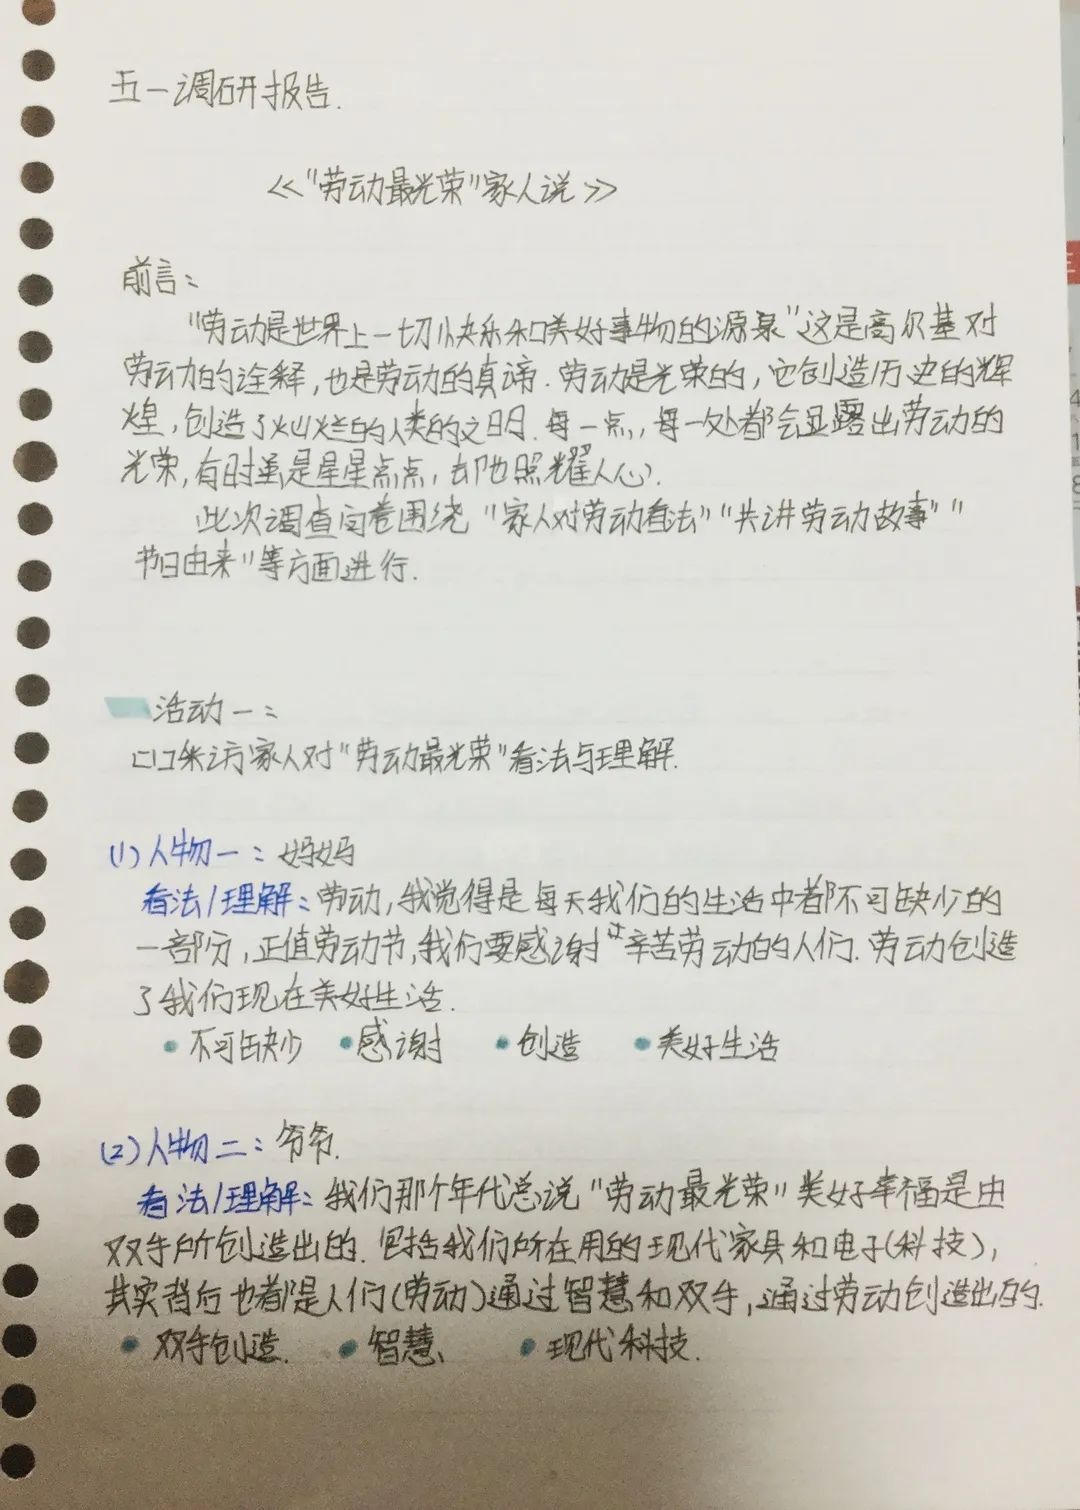 五一调研报告.
《"劳动最光荣"家人说》
前言:
"劳动是世界上一切快乐和美好事物的源泉"这是高尔基对
劳动的诠释,也是劳动的真谛.劳动是光荣的,它创造历史的辉
煌,创造了灿烂的人类的文明.每一点,每一处都会显露出劳动的
光荣,有时虽是星星点点,却也照耀人心.
此次调查问卷围绕"家人对劳动看法""共讲劳动故事""
节日由来"等方面进行.
活动一:
口口采访家人对"劳动最光荣"看法与理解.
(1)人物一:妈妈
看法/理解:劳动,我觉得是每天我们的生活中都不可缺少的
一部分,正值劳动节,我们要感谢辛苦劳动的人们.劳动创造
了我们现在美好生活.
•不可缺少 •感谢 •创造 •美好生活
(2)人物二:爷爷.
看法/理解:我们那个年代总说"劳动最光荣"美好幸福是由
双手所创造出的.包括我们所在用的现代家具和电子(科技),
其实背后也都是人们(劳动)通过智慧和双手,通过劳动创造出的.
•双手创造. •智慧、 •现代科技.